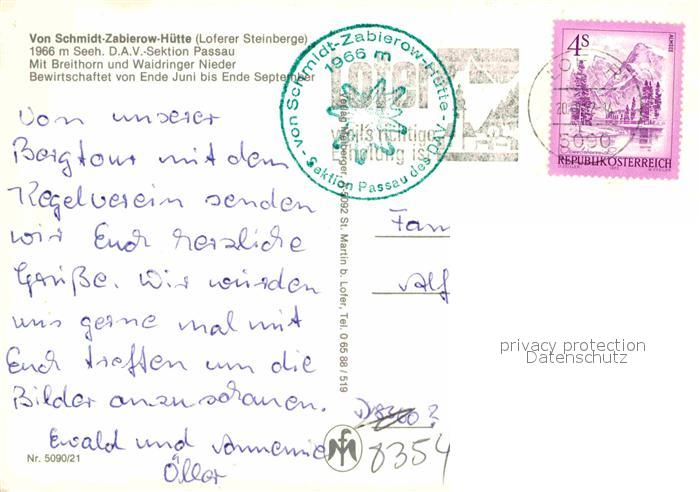 Von Schmidt-Zabierow-Hütte (Loferer Steinberge)
1966 m Seeh. D.A.V.-Sektion Passau
Mit Breithorn und Waidringer Nieder
Bewirtschaftet von Ende Juni bis Ende September
Von unserer
Bergtour mit dem
Kegelverein senden
wir Euch herzliche
Grüße. Wir würden
uns gerne mal mit
Euch treffen um die
Bilder anzuschauen.
Ewald und Annemie
Öller
Nr. 5090/21
- von Schmidt-Zabierow-Hütte -
1966 m
Sektion Passau des DAV
Lofer
weil's richtige
Erholung ist
5092 St. Martin b. Lofer, Tel. 0 65 88 / 519
5090
4S
ALMSEE
REPUBLIK ÖSTERREICH
Fam
Alf
privacy protection
Datenschutz
8354